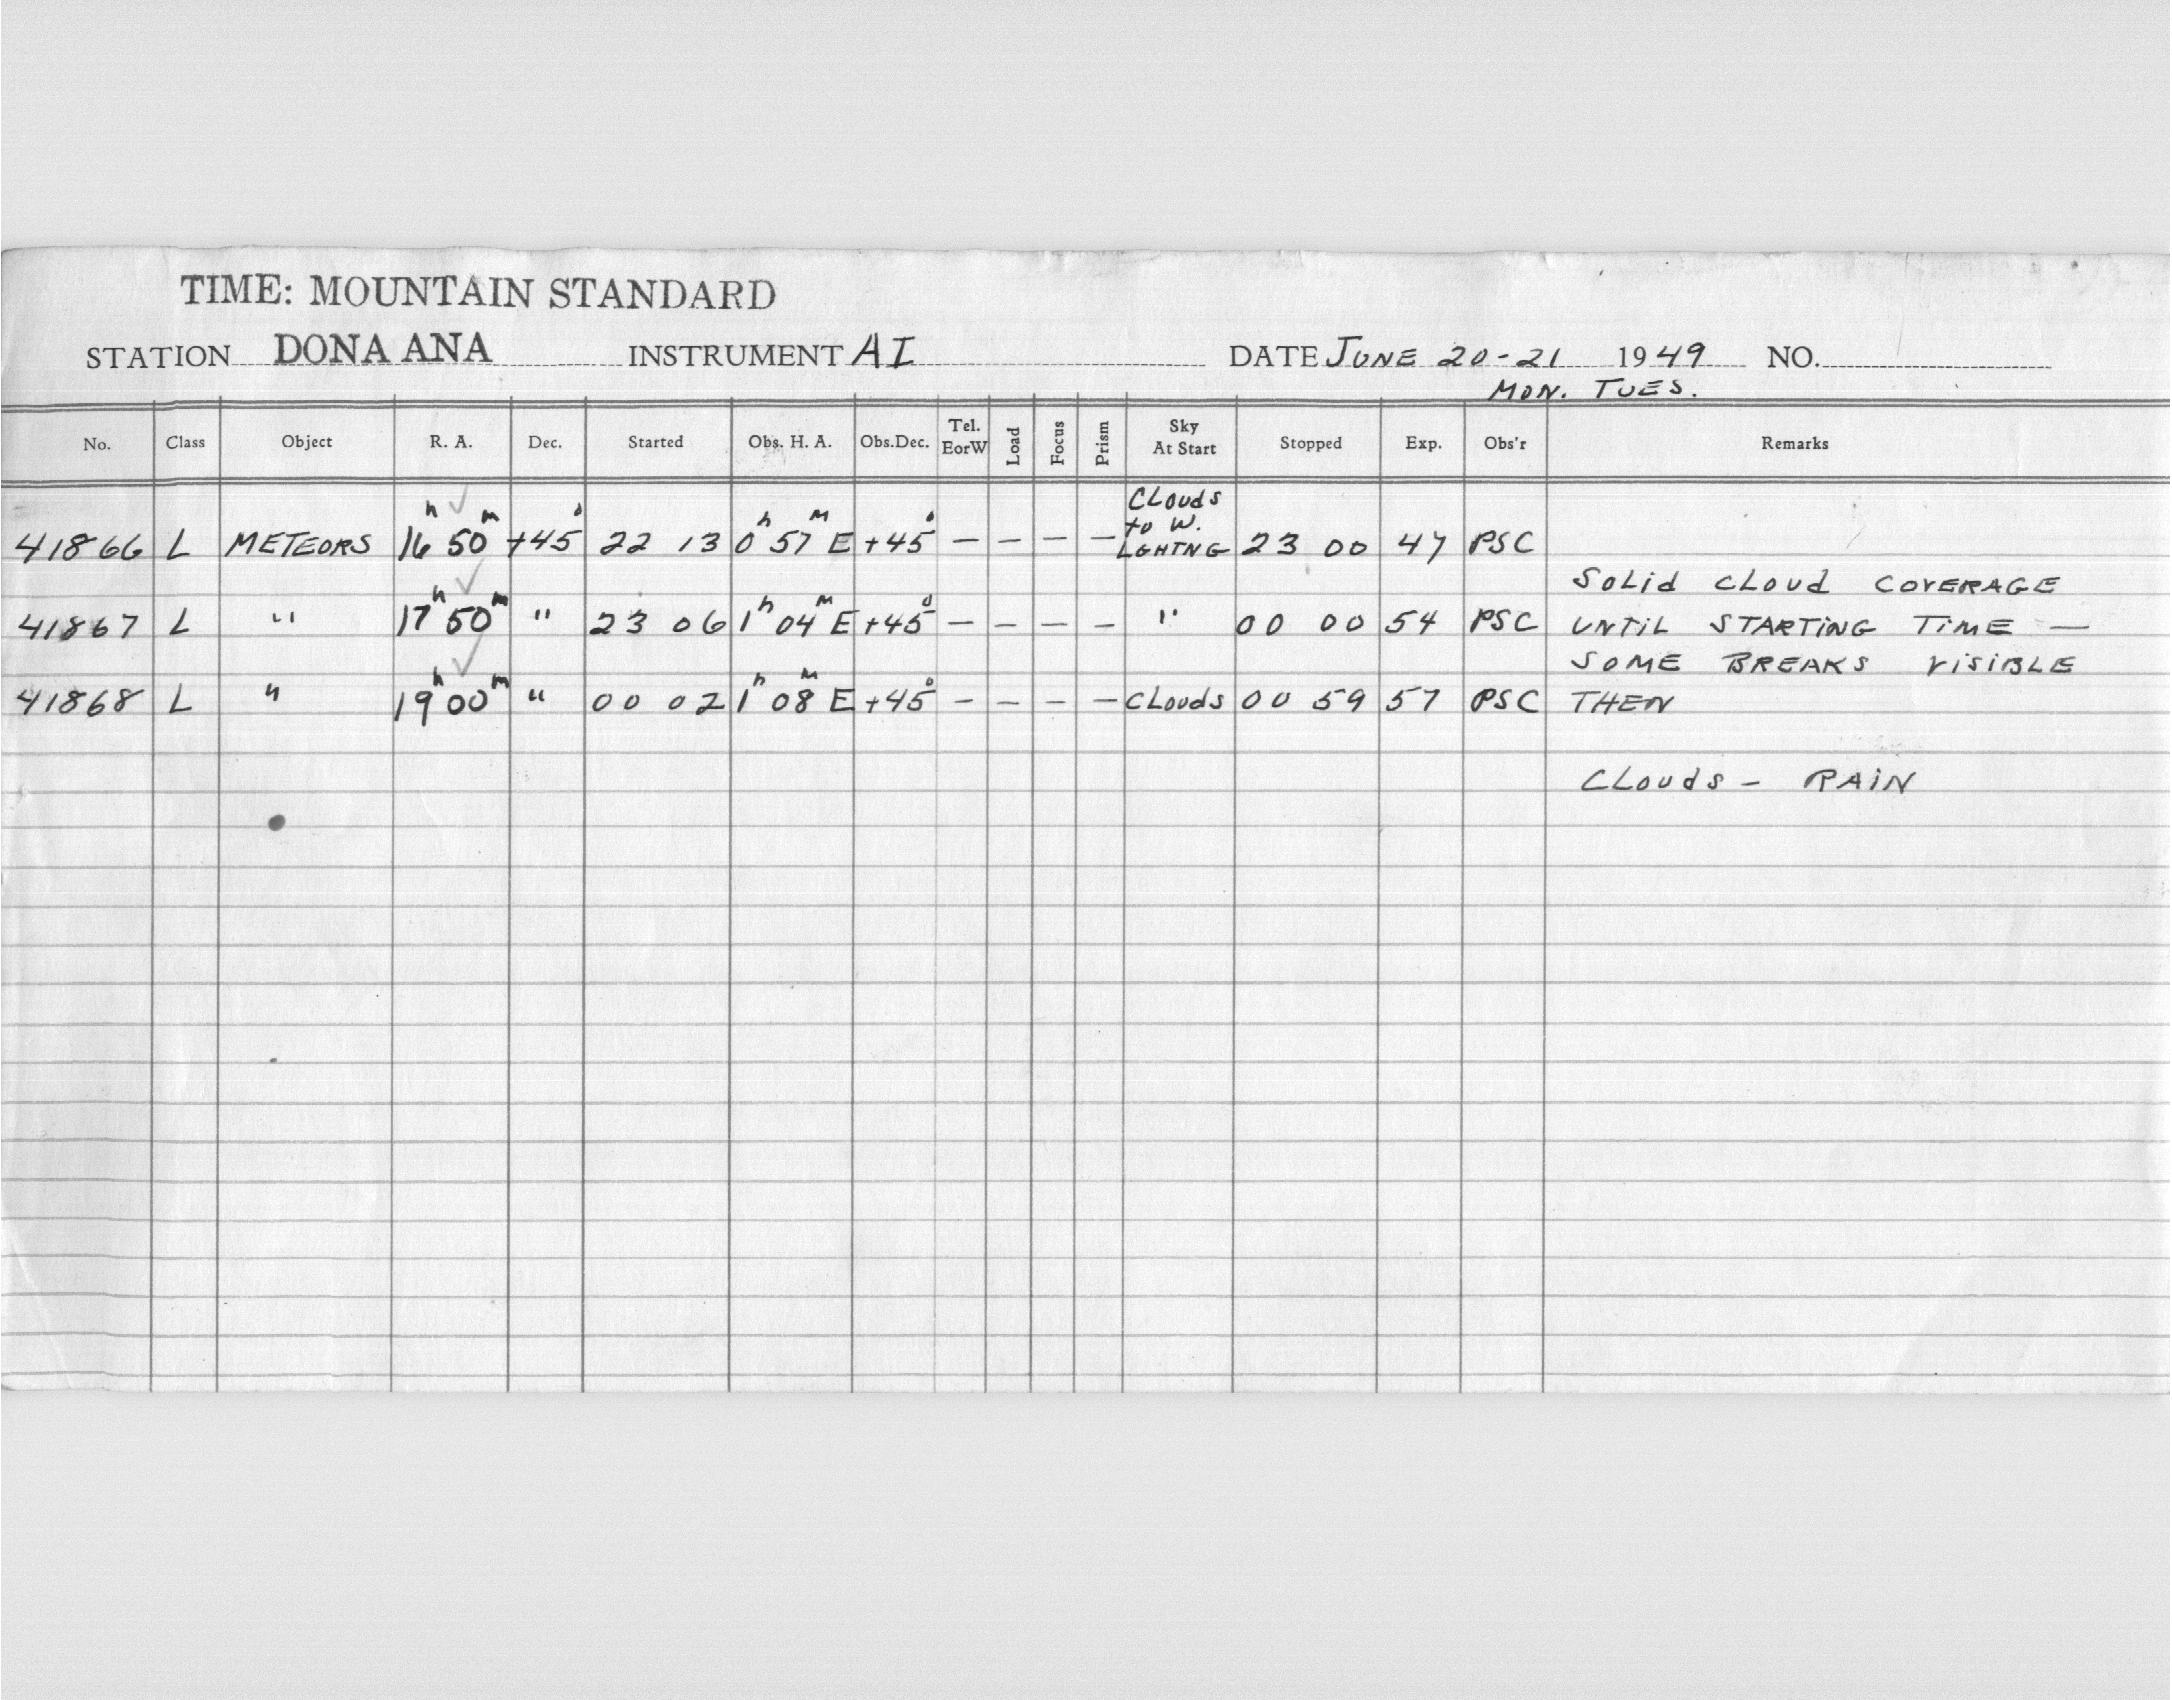 TIME: MOUNTAIN STANDARD
STATION DONA ANA INSTRUMENT AI DATE JUNE 20-21 1949 NO.
MON. TUES.
No. Class Object R. A. Dec. Started Obs. H. A. Obs.Dec. Tel. EorW Load Focus Prism Sky At Start Stopped Exp. Obs'r Remarks
41866 L METEORS 16h 50m +45° 22 13 0h 57m E +45° — — — — CLouds to W. LGHTNG 23 00 47 PSC
41867 L " 17h 50m " 23 06 1h 04m E +45° — — — — " 00 00 54 PSC SOLid CLOUD COVERAGE UNTIL STARTING TIME —
41868 L " 19h 00m " 00 02 1h 08m E +45° — — — — CLouds 00 59 57 PSC SOME BREAKS VISIBLE THEN
CLouds - RAIN